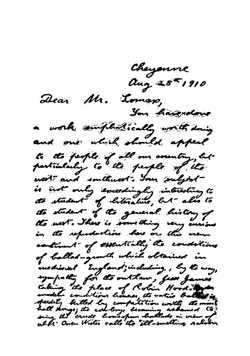 Cheyenne
Aug 28th 1910
Dear Mr. Lomax,
You have done
a work emphatically worth doing
and one which should appeal
to the people of all our country, but
particularly to the people of the
west and southwest. Your subject
is not only exceedingly interesting to
the student of literature, but also to
the student of the general history of
the west. There is something very curious
in the reproduction here on this new
continent of essentially the conditions
of ballad-growth which obtained in
mediæval England; including, by the way,
sympathy for the outlaw, Jesse James
taking the place of Robin Hood. Under
modern conditions however, the native ballad is
speedily killed by competition with the music
hall songs; the cowboys becoming ashamed to
sing the crude homespun ballads in view of
what Owen Wister calls the ill-smelling saloon